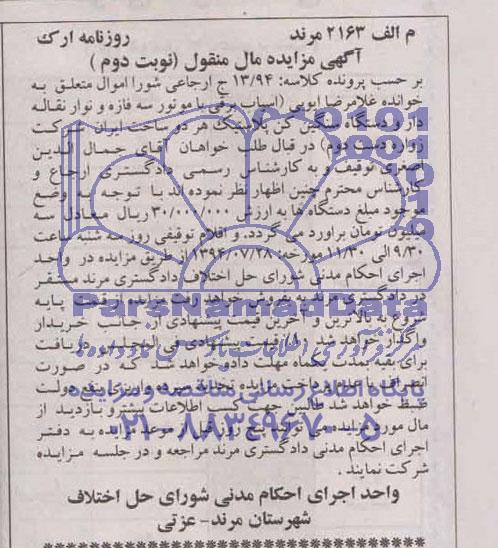 م الف ۲۱۶۳ مرند روزنامه ارک
آگهی مزایده مال منقول (نوبت دوم )
بر حسب پرونده کلاسه: ۱۳/۹۴ ج ارجاعی شورا اموال متعلق به
خوانده غلامرضا ایوبی (اسیاب برقی با موتور سه فازه و نوار نقاله
دار و دستگاه سنگین کن پلاستیک هر دو ساخت ایران شرکت
زواره دست دوم) در قبال طلب خواهان آقای جمال الدین
اصغری توقیف و به کارشناس رسمی دادگستری ارجاع و
کارشناس محترم چنین اظهار نظر نموده اند با توجه به وضع
موجود مبلغ دستگاه ها به ارزش ۳۰/۰۰۰/۰۰۰ ریال معادل سه
میلیون تومان براورد می گردد. و اقلام توقیفی روز سه شنبه ساعت
۹/۳۰ الی ۱۱/۳۰ مورخه: ۱۳۹۴/۰۷/۲۸ از طریق مزایده در واحد
اجرای احکام مدنی شورای حل اختلاف دادگستری مرند مستقر
در دادگستری مرند به فروش خواهد رفت مزایده از قیمت پایه
شروع به بالاترین و آخرین قیمت پیشنهادی از جانب خریدار
واگذار خواهد شد ۱۰٪ قیمت پیشنهادی فی المجلس دریافت
برای بقیه بمدت یکماه مهلت داده خواهد شد که در صورت
انصراف یا عدم پرداخت مزایده تجدید سپرده واریزی بنفع دولت
ضبط خواهد شد طالبین جهت کسب اطلاعات بیشتر و بازدید از
مال مورد مزایده می توانند پنج روز قبل از موعد مزایده به دفتر
اجرای احکام مدنی دادگستری مرند مراجعه و در جلسه مزایده
شرکت نمایند .
واحد اجرای احکام مدنی شورای حل اختلاف
شهرستان مرند- عزتی
ParsNamadData
پایگاه اطلاع رسانی مناقصه و مزایده
۰۲۱-۸۸۳۴۹۶۷۰-۵